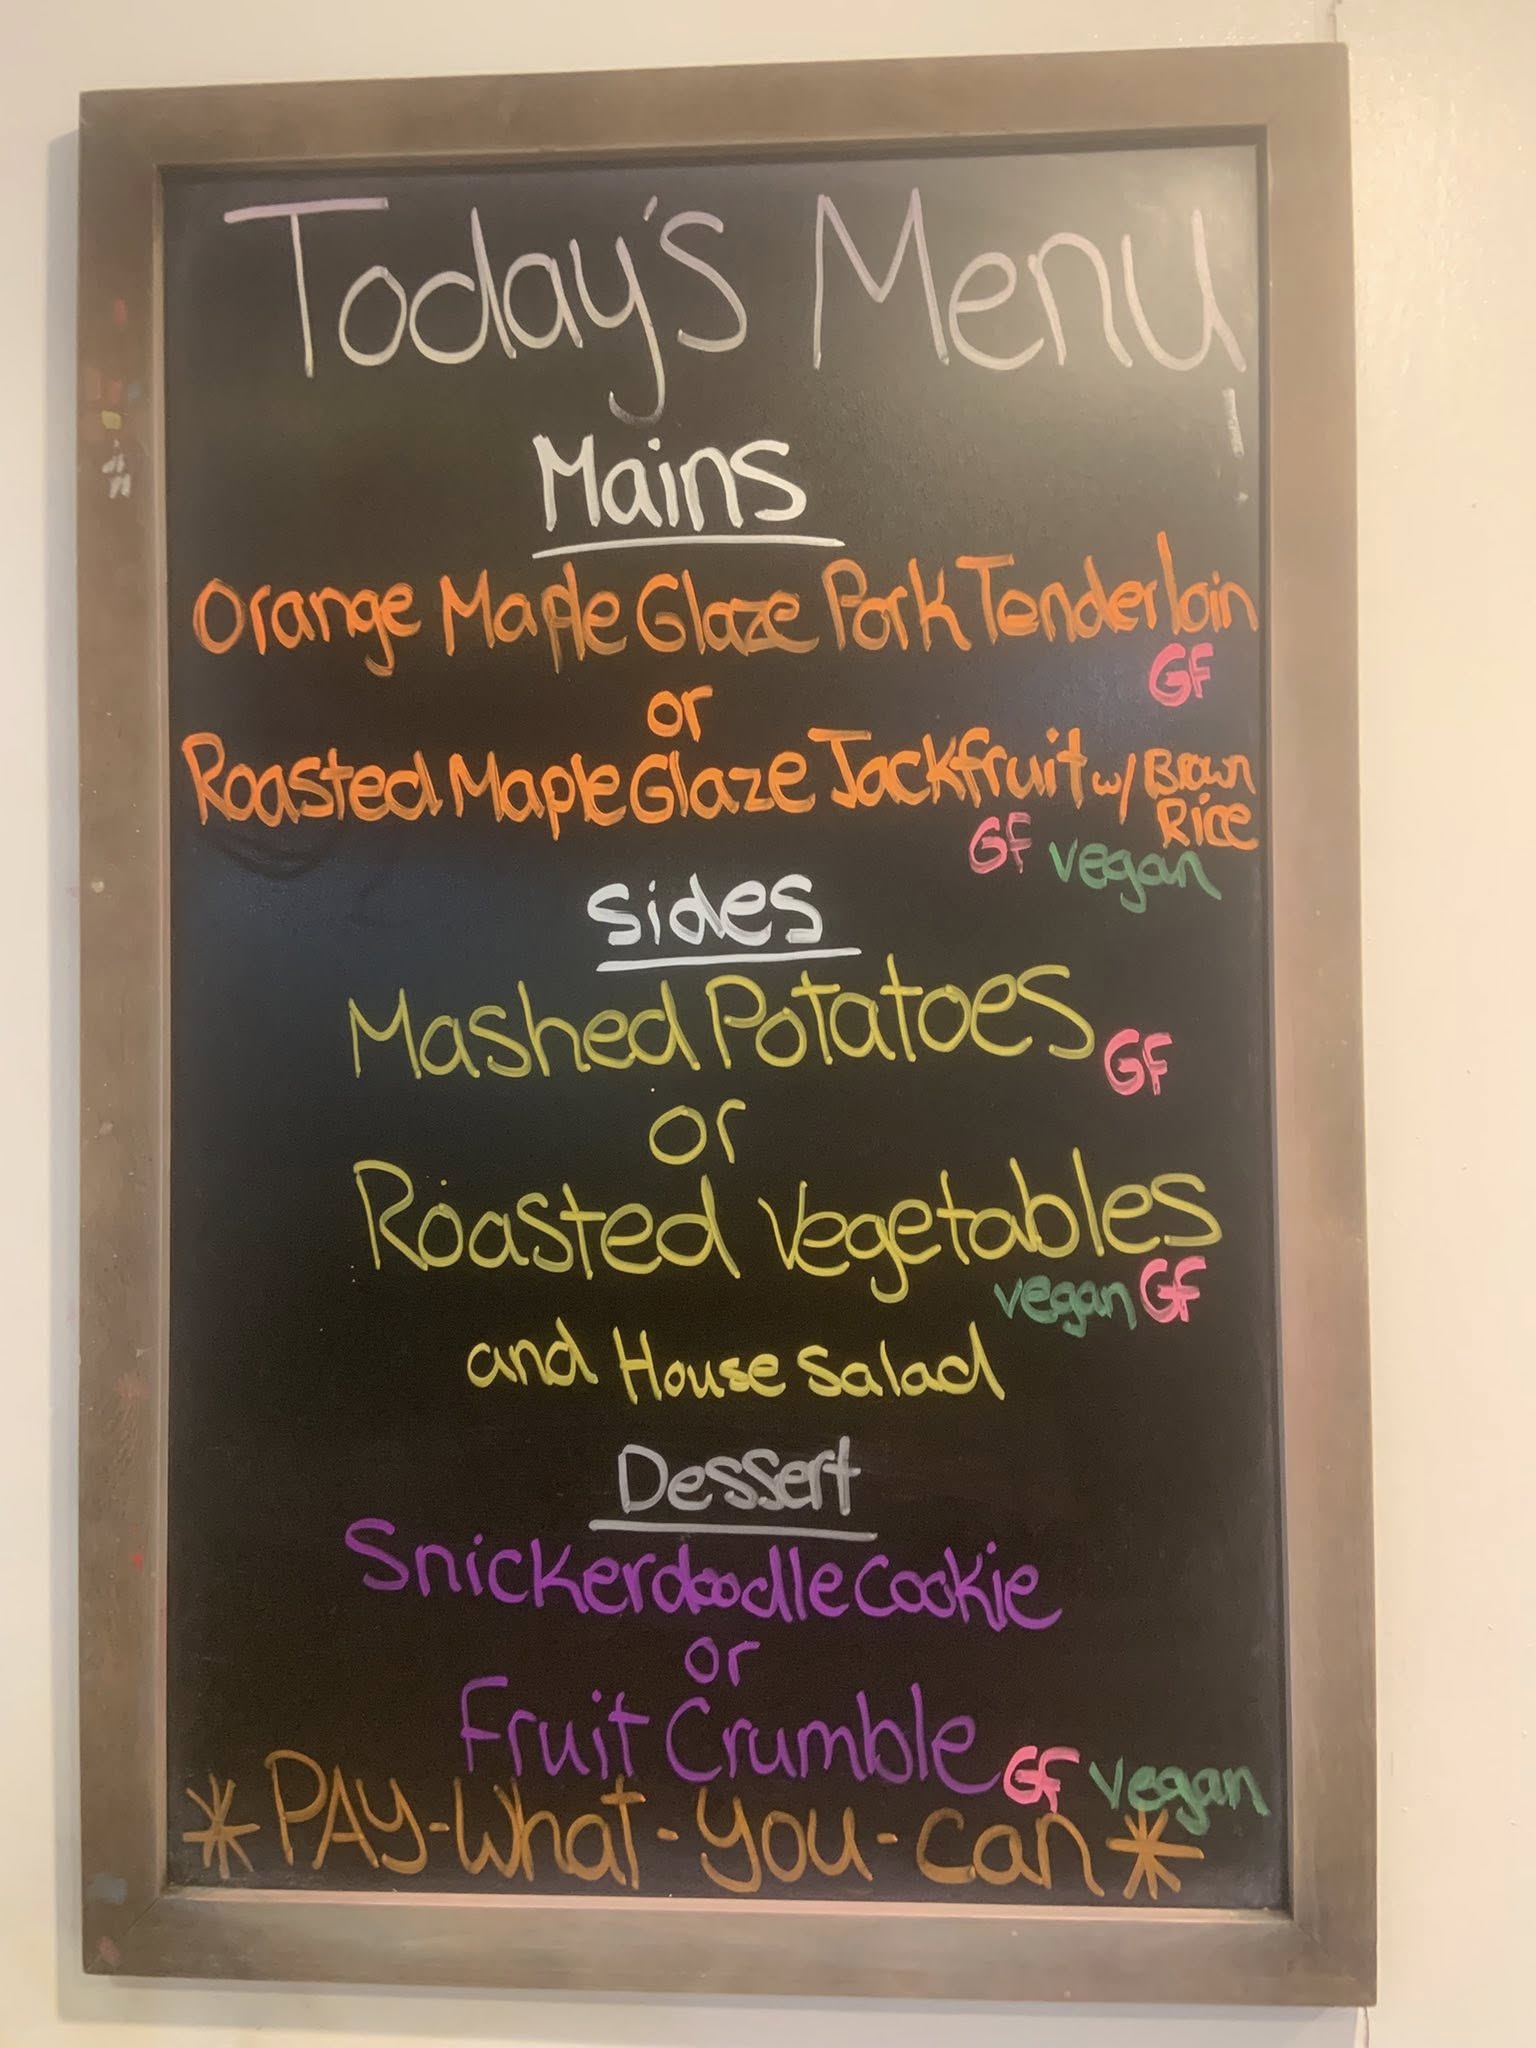 Today's Menu
Mains
Orange Maple Glaze Pork Tenderloin
GF
or
Roasted Maple Glaze Jackfruit w/ Brown
Rice
GF vegan
Sides
Mashed Potatoes
GF
or
Roasted Vegetables
vegan GF
and House Salad
Dessert
Snickerdoodle Cookie
or
Fruit Crumble
GF vegan
*PAY-What-You-Can*